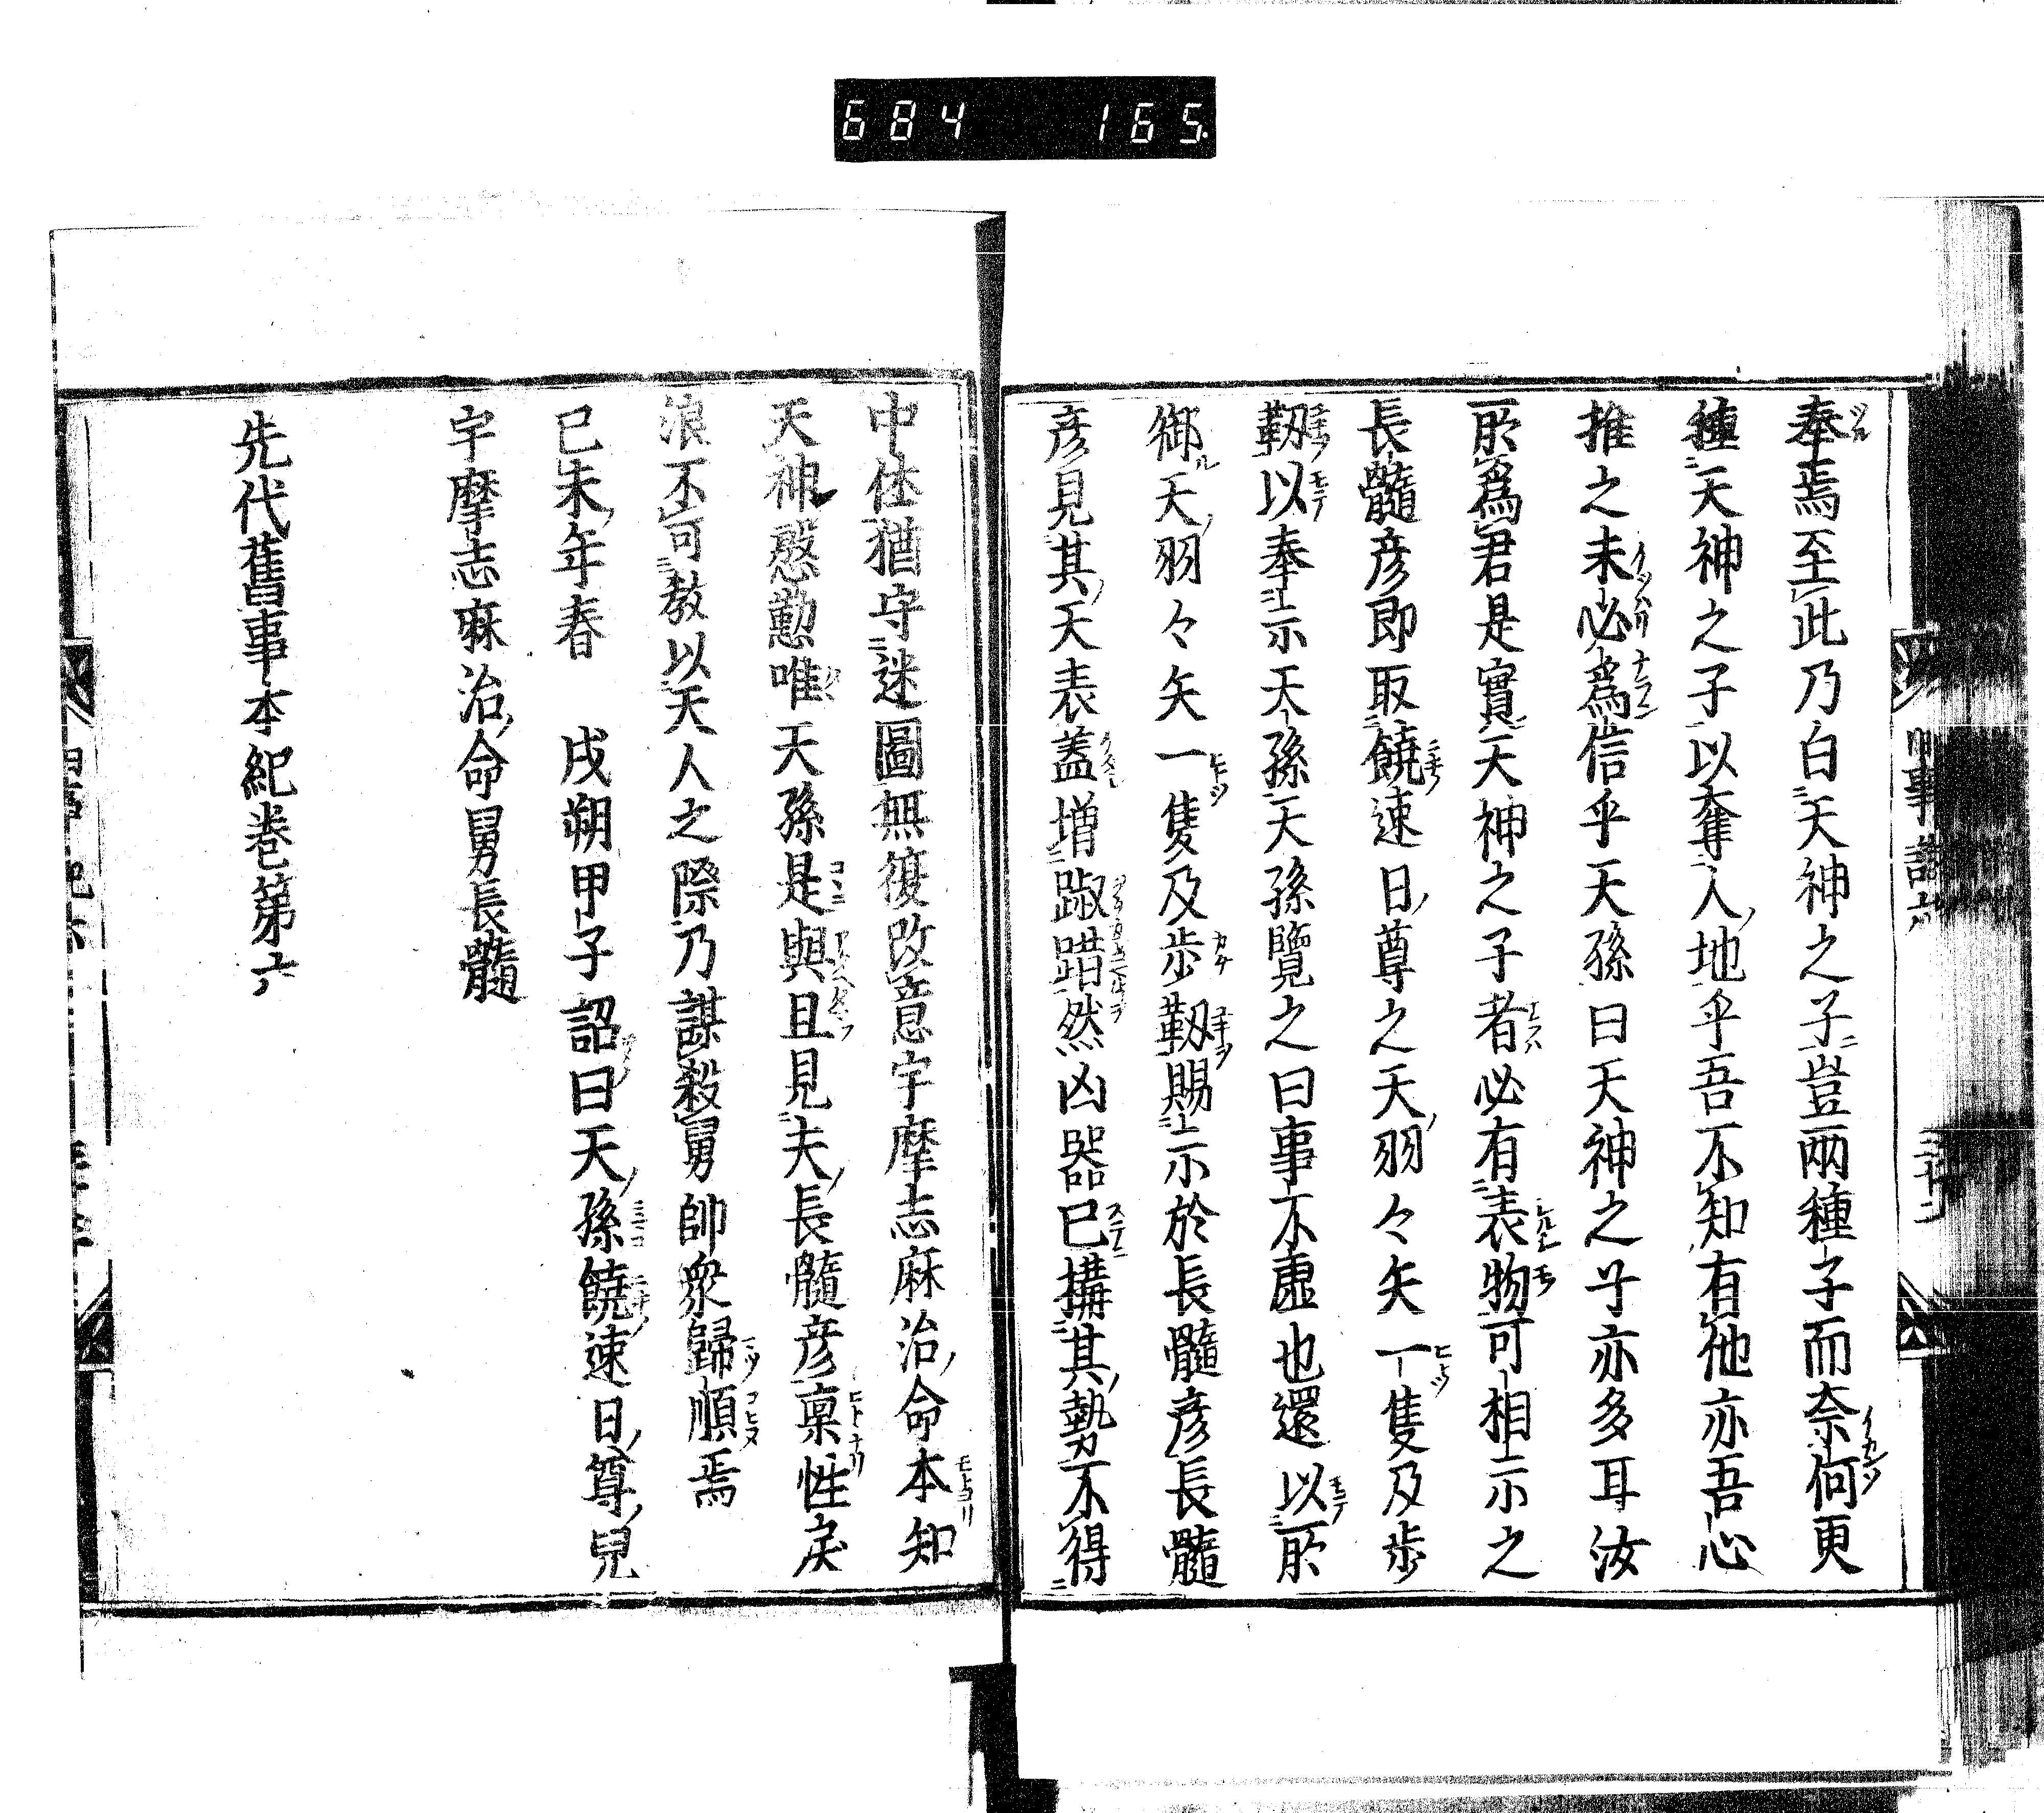 684 165
奉焉至此乃白天神之子豈兩種子而奈何更
種天神之子以奪人地乎吾不知有他亦吾心
推之未必為信乎天孫曰天神之子亦多耳汝
所為君是實天神之子者必有表物可相示之
長髓彦即取饒速日尊之天羽々矢一隻及歩
靫以奉示天孫天孫覽之曰事不虛也還以所
御天羽々矢一隻及歩靫賜示於長髓彦長髓
彦見其天表蓋増踧踖然凶器已搆其勢不得
中休猶守迷圖無復改意宇摩志麻治命本知
天神慇懃唯天孫是與且見夫長髓彦稟性戾
浪不可教以天人之際乃謀殺舅帥衆歸順焉
己未年春 戌朔甲子詔曰天孫饒速日尊兒
宇摩志麻治命舅長髓
先代舊事本紀卷第六